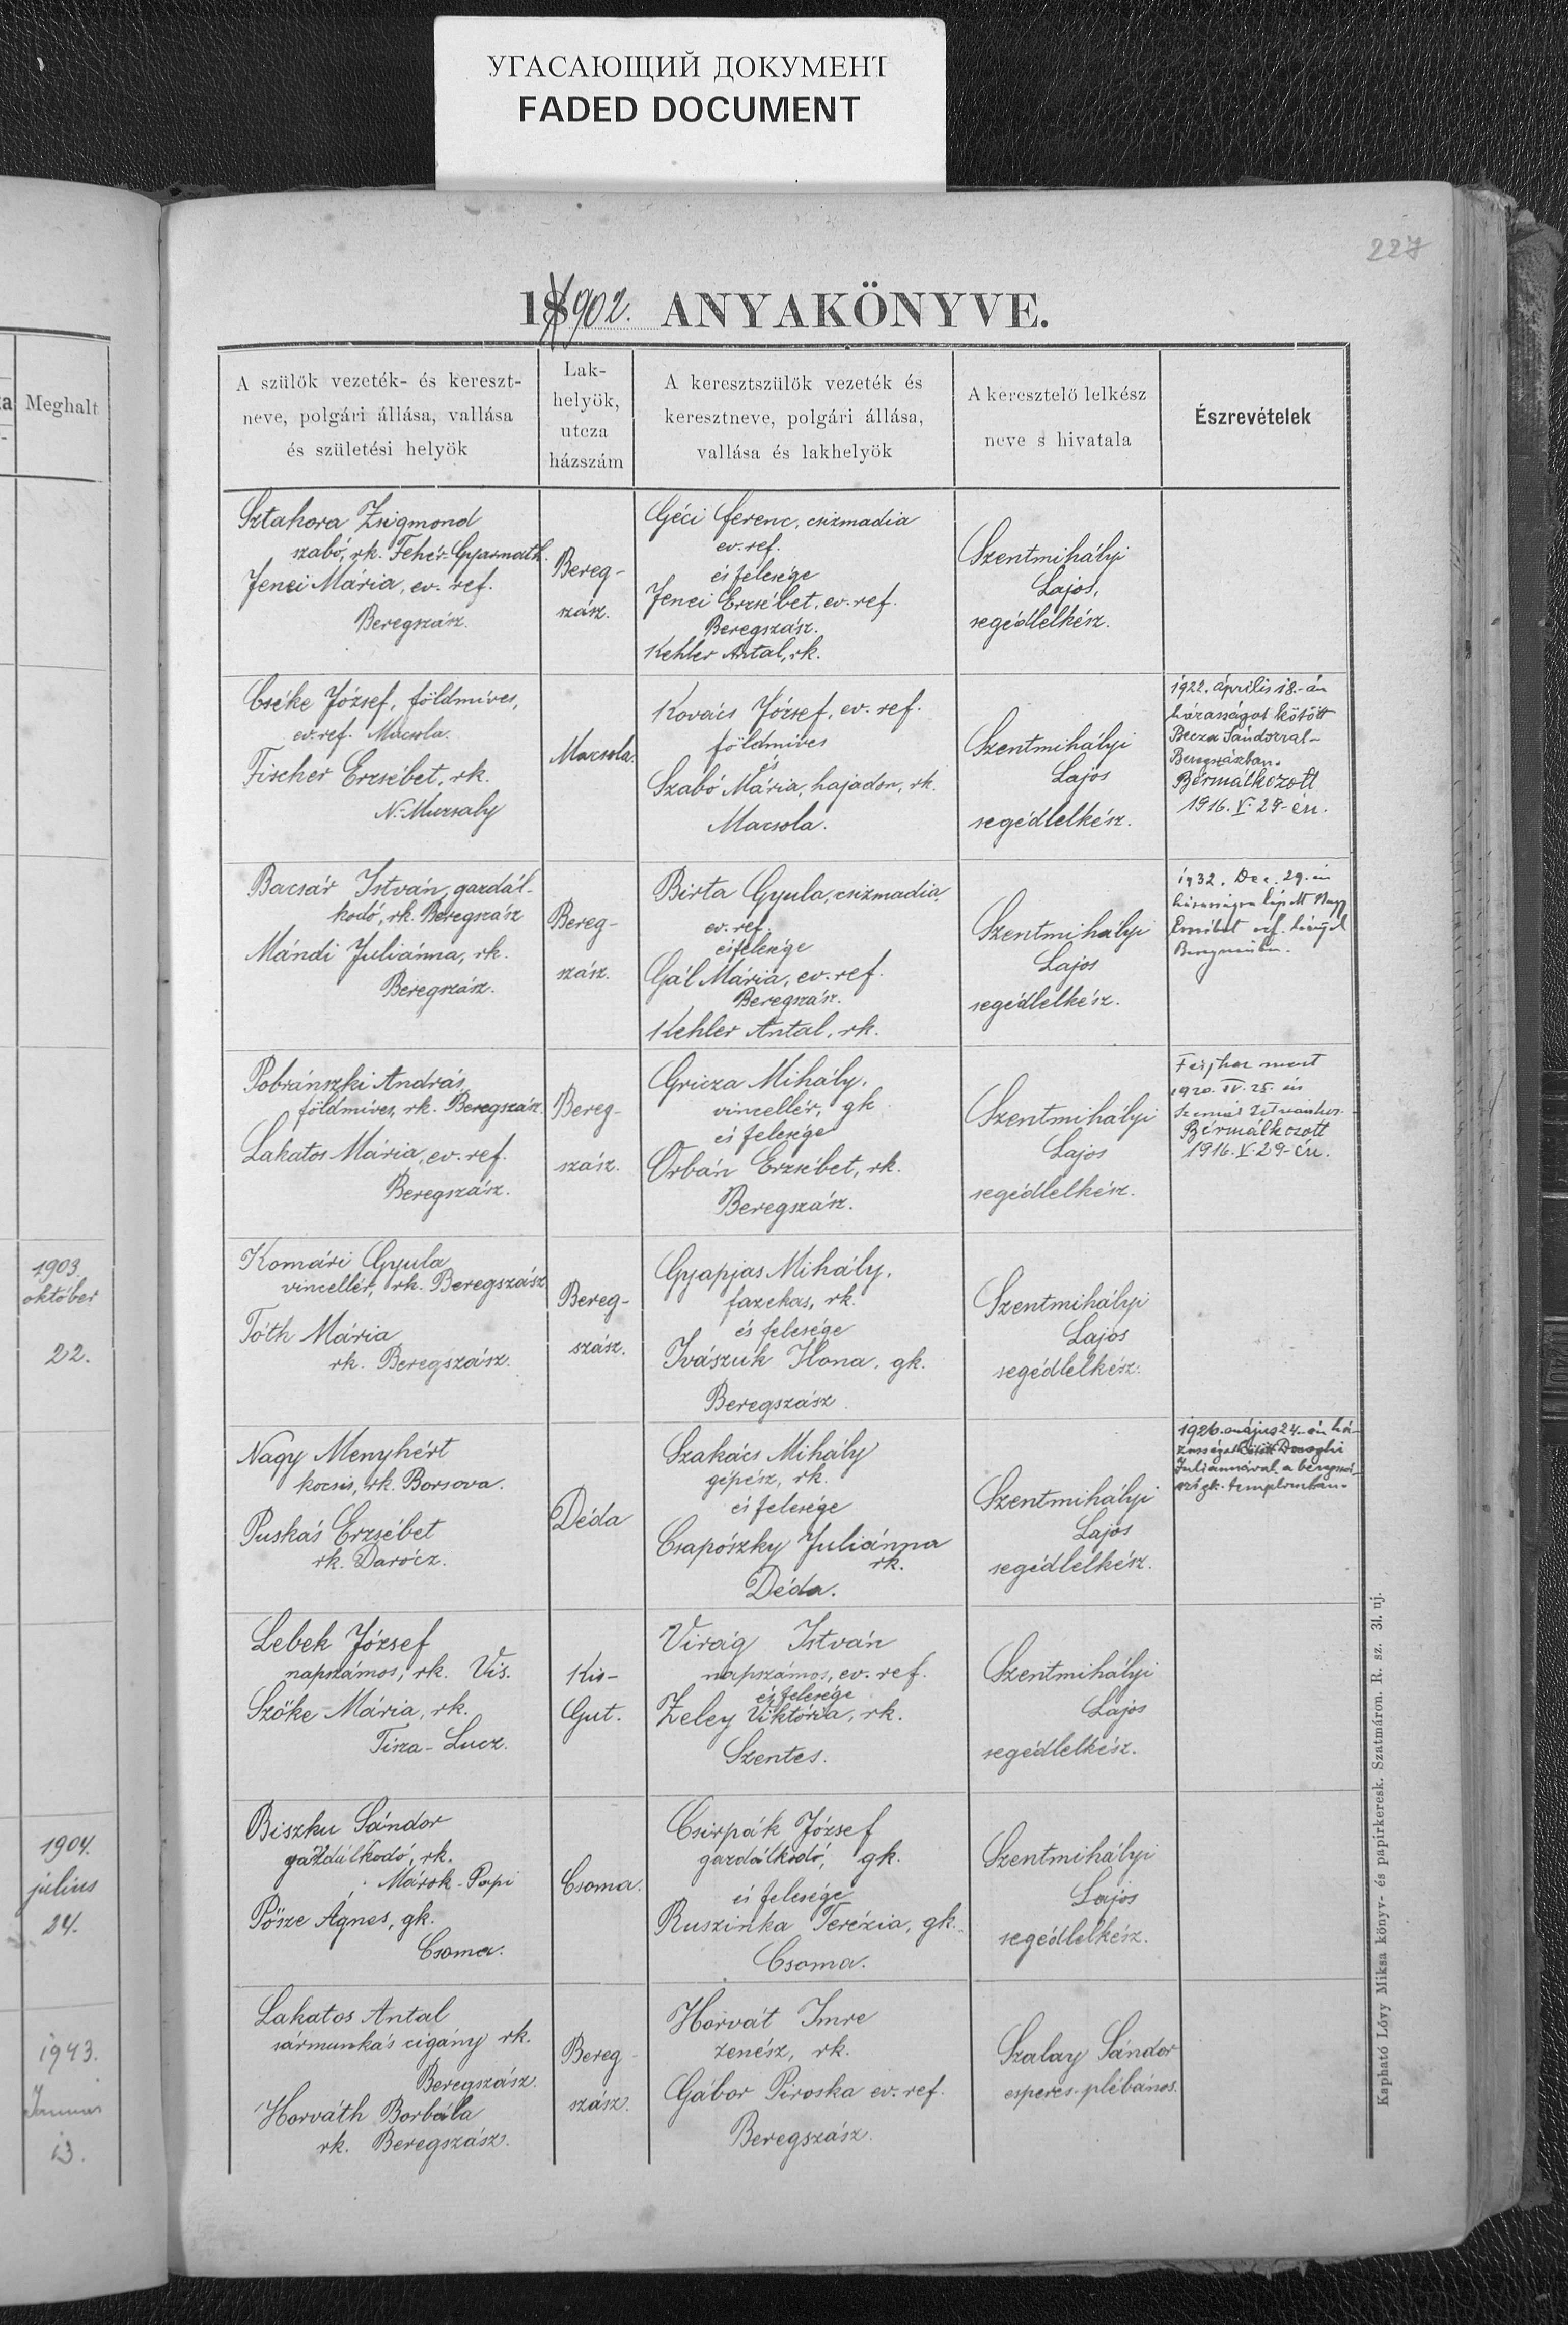 УГАСАЮЩИЙ ДОКУМЕНТ
FADED DOCUMENT
227
1902. ANYAKÖNYVE.
Meghalt
1903.
október
22.
1904.
július
24.
1943.
Január
13.
A szülők vezeték- és kereszt-
neve, polgári állása, vallása
és születési helyök
Lak-
helyök,
utcza
házszám
A keresztszülők vezeték és
keresztneve, polgári állása,
vallása és lakhelyök
A keresztelő lelkész
neve s hivatala
Észrevételek
Sztahora Zsigmond
szabó, rk. Fehér-Gyarmath.
Jenei Mária, ev. ref.
Beregszász.
Bereg-
szász.
Géci Ferenc, csizmadia
ev. ref.
és felesége
Jenei Erzsébet, ev. ref.
Beregszász.
Kehler Antal, rk.
Szentmihályi
Lajos,
segédlelkész.
Cséke József, földmíves,
ev. ref. Macsola.
Fischer Erzsébet, rk.
N. Muzsaly
Macsola.
Kovács József, ev. ref.
földmíves
és
Szabó Mária, hajadon, rk.
Macsola.
Szentmihályi
Lajos
segédlelkész.
1922. április 18-án
házasságot kötött
Becza Sándorral
Beregszászban.
Bérmálkozott
1916. V. 29-én.
Bacsár István, gazdál-
kodó, rk. Beregszász
Mándi Juliánna, rk.
Beregszász.
Bereg-
szász.
Birta Gyula, csizmadia
ev. ref.
és felesége
Gál Mária, ev. ref.
Beregszász.
Kehler Antal, rk.
Szentmihályi
Lajos
segédlelkész.
1932. Dec. 29-én
házasságra lépett Nagy
Erzsébet ref.
Pobránszki András
földmíves, rk. Beregszász
Lakatos Mária, ev. ref.
Beregszász.
Bereg-
szász.
Gricza Mihály,
vincellér, gk
és felesége
Orbán Erzsébet, rk.
Beregszász.
Szentmihályi
Lajos
segédlelkész.
Férjhez ment
1920. IV. 25. én
Bérmálkozott
1916. V. 29-én.
Komári Gyula
vincellér, rk. Beregszász
Tóth Mária
rk. Beregszász.
Bereg-
szász.
Gyapjas Mihály,
fazekas, rk.
és felesége
Ivászuk Ilona, gk.
Beregszász.
Szentmihályi
Lajos
segédlelkész.
Nagy Menyhért
kocsis, rk. Borsova.
Puskás Erzsébet
rk. Darócz.
Déda
Szakács Mihály
gépész, rk.
és felesége
Csapószky Juliánna
rk.
Déda.
Szentmihályi
Lajos
segédlelkész.
1926. május 24-én há-
zasságot kötött
Juliannával a beregszá-
szi gk. templomban.
Lebek József
napszámos, rk. Vis.
Szőke Mária, rk.
Tisza-Lucz.
Kis-
Gut.
Virág István
napszámos, ev. ref.
és felesége
Zeley Viktória, rk.
Szentes.
Szentmihályi
Lajos
segédlelkész.
Biszku Sándor
gazdálkodó, rk.
Márok-Papi
Pősze Ágnes, gk.
Csoma.
Csoma.
Csirpák József
gazdálkodó, gk.
és felesége
Ruszinka Terézia, gk.
Csoma.
Szentmihályi
Lajos
segédlelkész.
Lakatos Antal
sármunkás cigány rk.
Beregszász.
Horváth Borbála
rk. Beregszász.
Bereg-
szász.
Horvát Imre
zenész, rk.
Gábor Piroska ev. ref.
Beregszász.
Szalay Sándor
esperes-plébános.
Kapható Lővy Miksa könyv- és papirkeresk. Szatmáron. R. sz. 3l. uj.